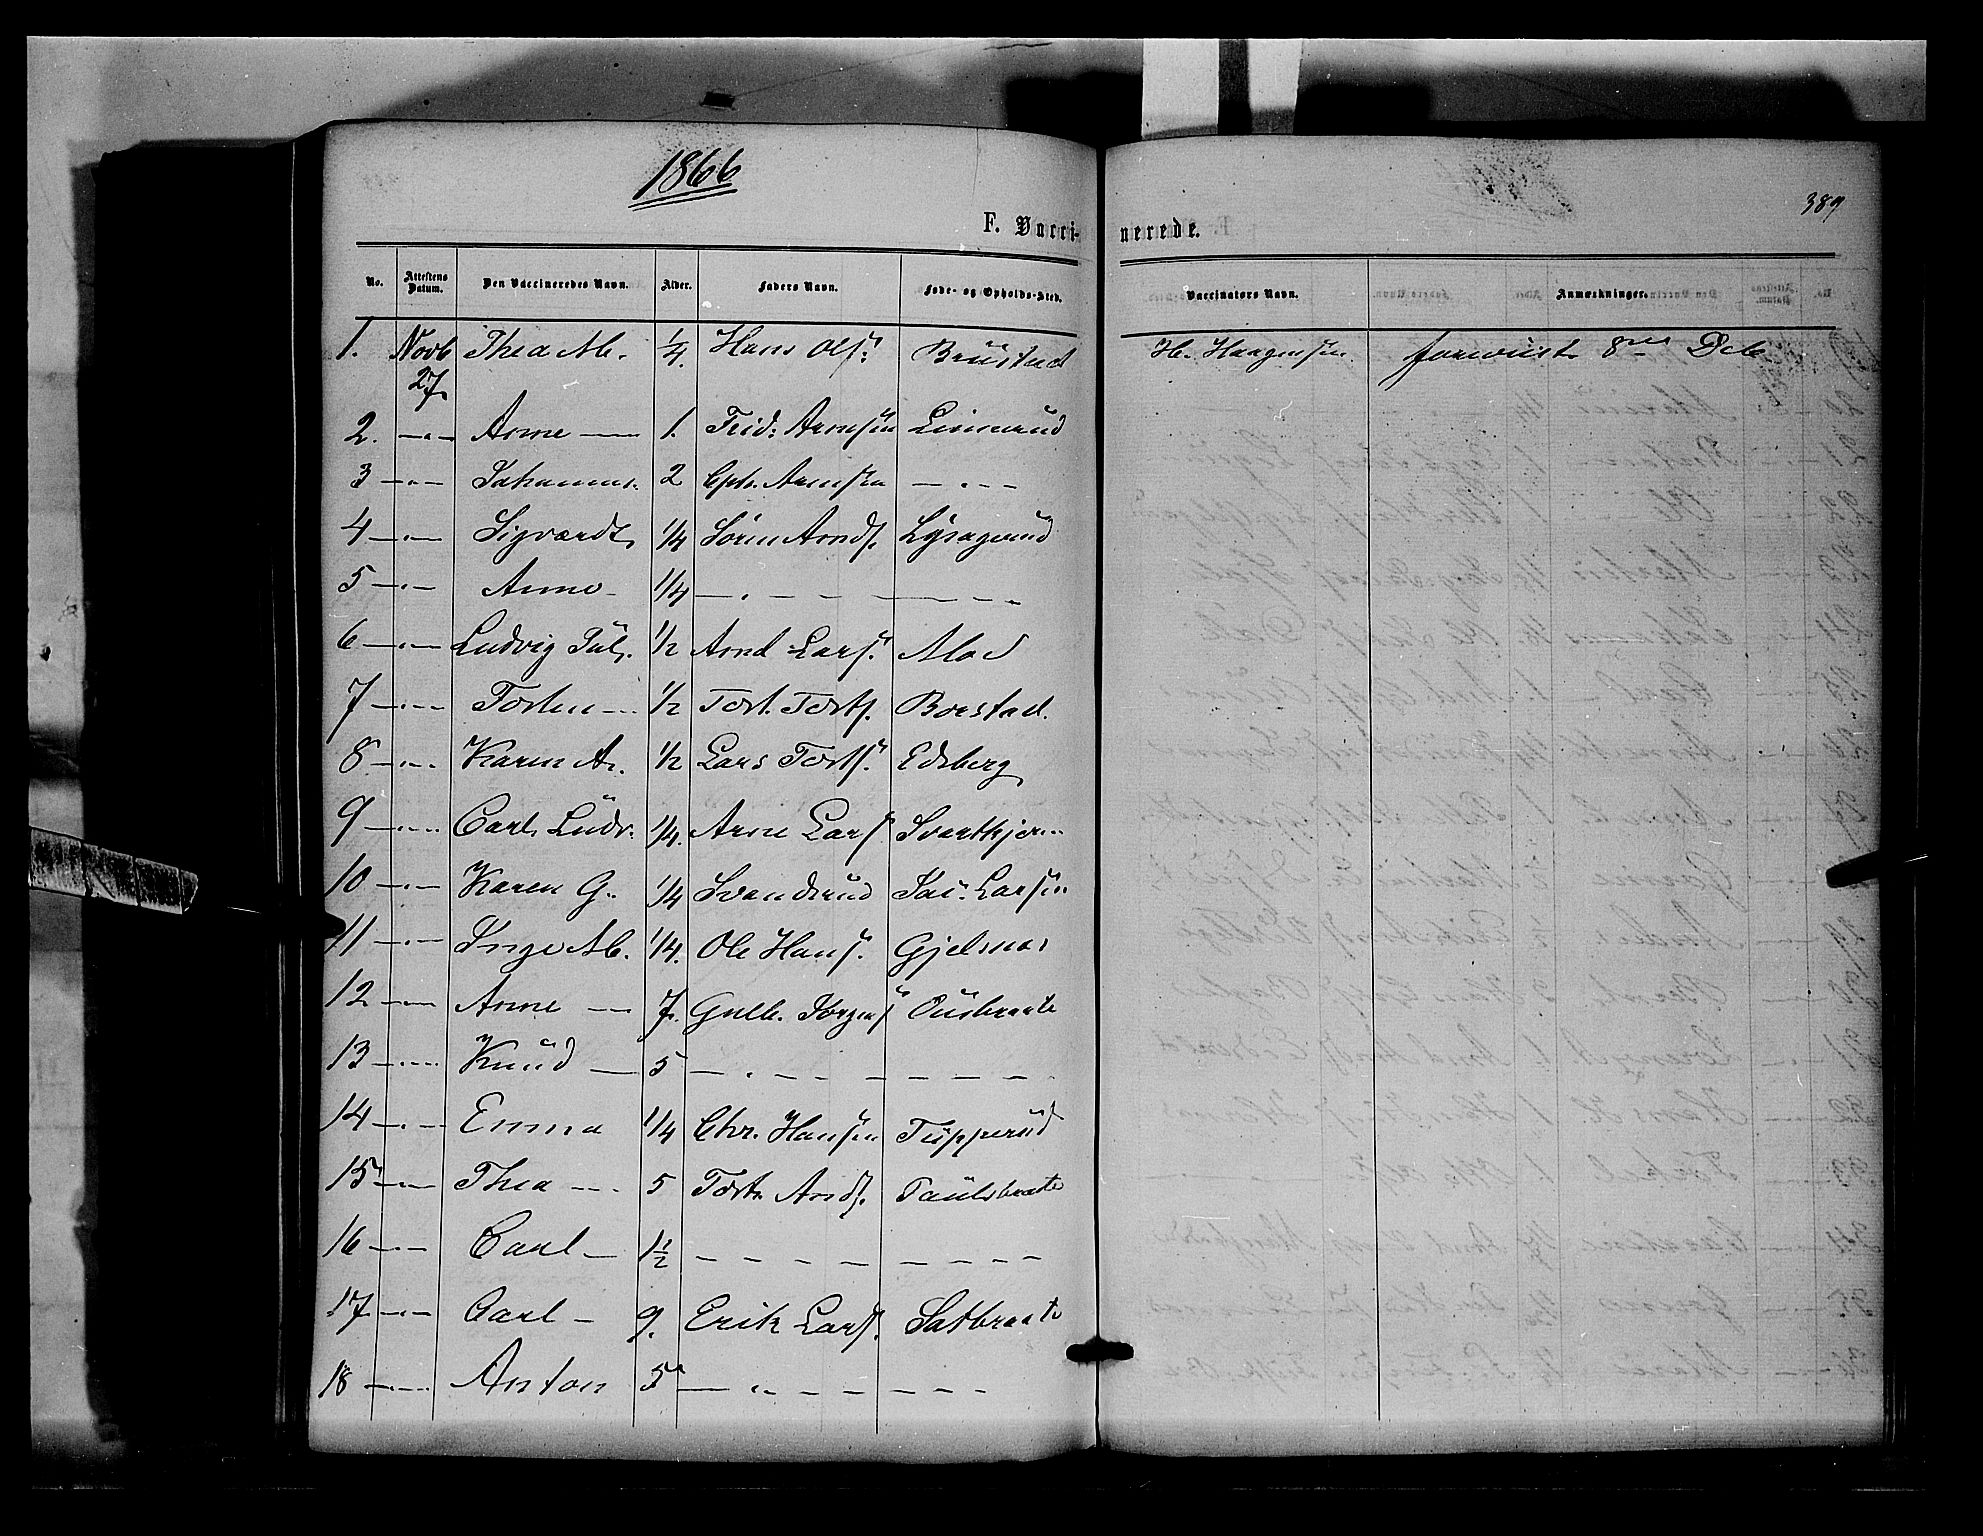 1866
389
F. Vacci- nerede.
No. Attestens Datum. Den Vaccineredes Navn. Alder. Faders Navn. Føde- og Opholds-Sted. Vaccinators Navn. Anmærkninger.
1. Novb 27 Thea M. 1/4. Hans Ols. Brustad H. Haagensen foreviist 8 Deb
2. —"— Anne — 1. Frid. Arnesen Linnerud
3 —"— Johannes. 2 Cph. Arnesen — " — —
4 —"— Sigvardt 1/4 Søren Arnds. Lysagerud
5 —"— Anne — 1/4 — " — — — — — —
6 —"— Ludvig Jul. 1/2 Arnd Lars. Moe
7 —"— Torsten — 1/2 Tort. Torts. Borstad.
8 —"— Karen A. 1/2 Lars Torts. Edsberg
9 —"— Carl Ludv. 1/4. Arne Lars. Svartkjern
10 —"— Karen G. 1/4 Svendsrud Jac. Larsen
11 —"— Inge M. 1/4. Ole Hans. Gjelsnes
12 —"— Anne — 7. Gulb. Jørgens Ousbraate
13 —"— Knud — 5 — " — — — — — —
14 —"— Emma 1/4 Chr. Hansen Tupperud
15 —"— Thea — 5 Tort. Arnds. Paulsbraate
16 —"— Carl — 1 1/2 — — — — — — — —
17 —"— Carl — 9. Erik Lars. Satbraate
18 —"— Anton 5 — " — — — — — —